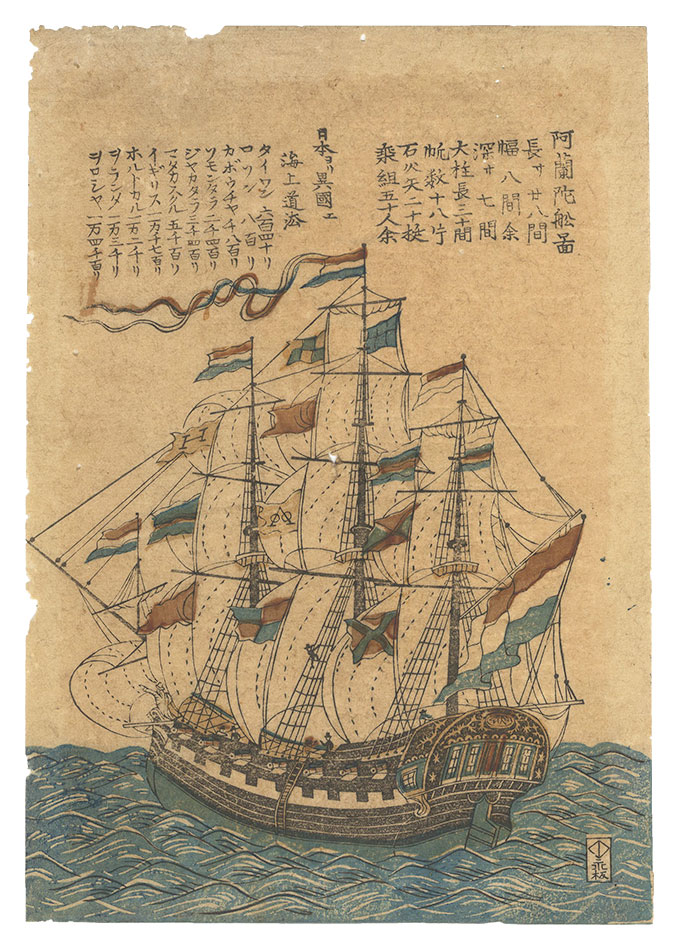 阿蘭陀舩圖
長サ廿八間
幅八間余
深サ七間
大柱長三十間
帆数十八庁
石火矢二十挺
乗組五十人余
日本ヨリ異國エ
海上道法
タイワン 六百四十リ
ロソン 八百リ
カボウチヤ千八百リ
ソモンタラ二千四百リ
ジヤカタラ三千四百リ
マタカスクル 五千百リ
イギリス一万千七百リ
ホルトカル一万二千リ
ヲランダ一万三千リ
ヲロシヤ一万四千百リ
板